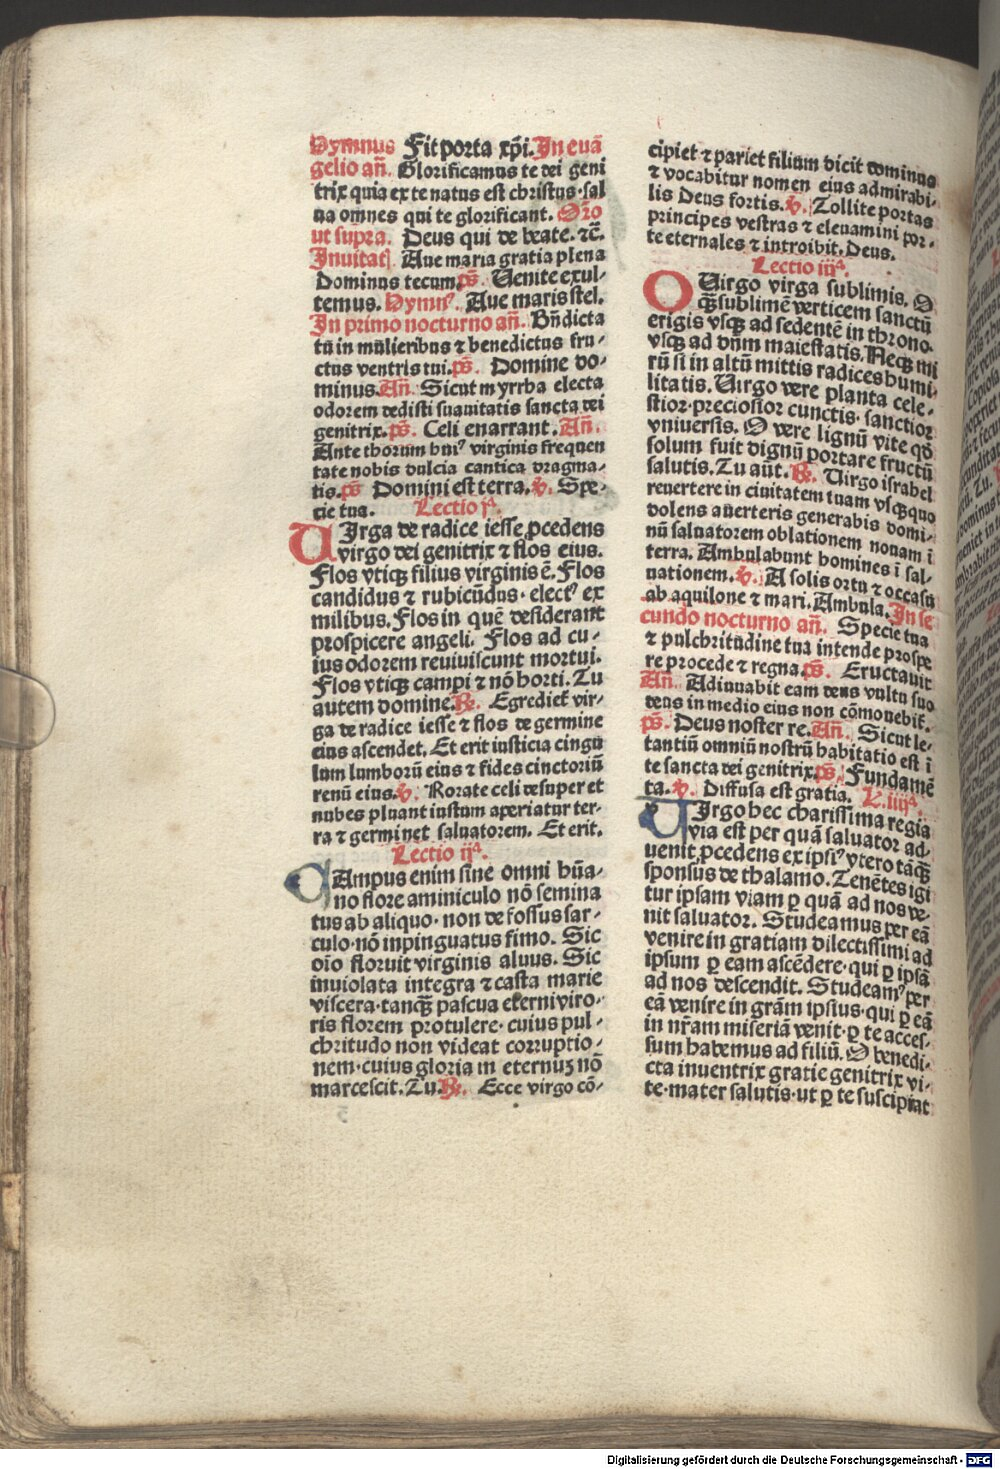 Hymnus Fit porta xp̄i. In euā
gelio añ. Glorificamus te dei geni
trix quia ex te natus est christus· sal
ua omnes qui te glorificant. Orō
ut supra. Deus qui de beate. ⁊c̄.
Inuitat. Aue maria gratia plena
Dominus tecum. ps̄. Uenite exul-
temus. Hymnꝰ. Aue maris stel.
In primo nocturno añ. Bñdicta
tu in mulieribus ⁊ benedictus fru-
ctus ventris tui. ps̄. Domine do-
minus. Añ. Sicut myrrha electa
odorem dedisti suauitatis sancta dei
genitrix. ps̄. Celi enarrant. Añ.
Ante thorum huiꝰ virginis frequen
tate nobis dulcia cantica dragma-
tis. ps̄ Domini est terra. v̄. Spe-
cie tua. Lectio jª.
UIrga de radice iesse ꝓcedens
virgo dei genitrix ⁊ flos eius.
Flos vtiqꝫ filius virginis ē. Flos
candidus ⁊ rubicūdus· electꝰ ex
milibus. Flos in quē desiderant
prospicere angeli. Flos ad cu-
ius odorem reuiuiscunt mortui.
Flos vtiqꝫ campi ⁊ nō horti. Tu
autem domine. R̄. Egrediet̄ vir-
ga de radice iesse ⁊ flos de germine
eius ascendet. Et erit iusticia cingu
lum lumborū eius ⁊ fides cinctoriū
renū eius. v̄. Rorate celi desuper et
nubes pluant iustum aperiatur ter-
ra ⁊ germinet saluatorem. Et erit.
Lectio ijª.
CAmpus enim sine omni hūa-
no flore aminiculo nō semina
tus ab aliquo· non defossus sar-
culo· nō inpinguatus fimo. Sic
oīo floruit virginis aluus. Sic
inuiolata integra ⁊ casta marie
viscera· tanqꝫ pascua eterni viro-
ris florem protulere· cuius pul-
chritudo non videat corruptio-
nem· cuius gloria in eternuꝫ nō
marcescit. Tu. R̄. Ecce virgo cō-
cipiet ⁊ pariet filium dicit dominus
⁊ vocabitur nomen eius admirabi-
lis Deus fortis. v̄. Tollite portas
principes vestras ⁊ eleuamini por-
te eternales ⁊ introibit. Deus.
Lectio iijª.
O Uirgo virga sublimis. O
qꝫ sublimē verticem sanctū
erigis vsqꝫ ad sedentē in throno.
vsqꝫ ad dn̄m maiestatis. Neqꝫ mi
rū si in altū mittis radices humi
litatis. Uirgo vere planta cele-
stior· preciosior cunctis· sanctior
vniuersis. O vere lignū vite qd̄
solum fuit dignū portare fructū
salutis. Tu aūt. R̄. Uirgo israhel
reuertere in ciuitatem tuam vsqꝫ quo
dolens auerteris generabis domi-
nū saluatorem oblationem nouam ī
terra. Ambulabunt homines ī sal-
uationem. v̄. A solis ortu ⁊ occasu
ab aquilone ⁊ mari. Ambula. In se
cundo nocturno añ. Specie tua
⁊ pulchritudine tua intende prospe
re procede ⁊ regna. ps̄. Eructauit
Añ. Adiuuabit eam deus vultu suo
deus in medio eius non cōmouebit̄.
ps̄. Deus noster re. Añ. Sicut le-
tantiū omniū nostrū habitatio est ī
te sancta dei genitrix. ps̄. Fundamē
ta. v̄. Diffusa est gratia. L. iiijª.
UIrgo hec charissima regia
via est per quā saluator ad-
uenit ꝓcedens ex ipsiꝰ vtero tāqꝫ
sponsus de thalamo. Tenētes igi
tur ipsam viam ꝑ quā ad nos ve-
nit saluator. Studeamus per eā
venire in gratiam dilectissimi ad
ipsum ꝑ eam ascēdere· qui ꝑ ipsā
ad nos descendit. Studeamꝰ per
eā venire in grām ipsius· qui ꝑ eā
in nr̄am miseriā venit· ꝑ te acces-
sum habemus ad filiū. O benedi-
cta inuentrix gratie genitrix vi-
te· mater salutis· ut ꝑ te suscipiat
Digitalisierung gefördert durch die Deutsche Forschungsgemeinschaft - DFG